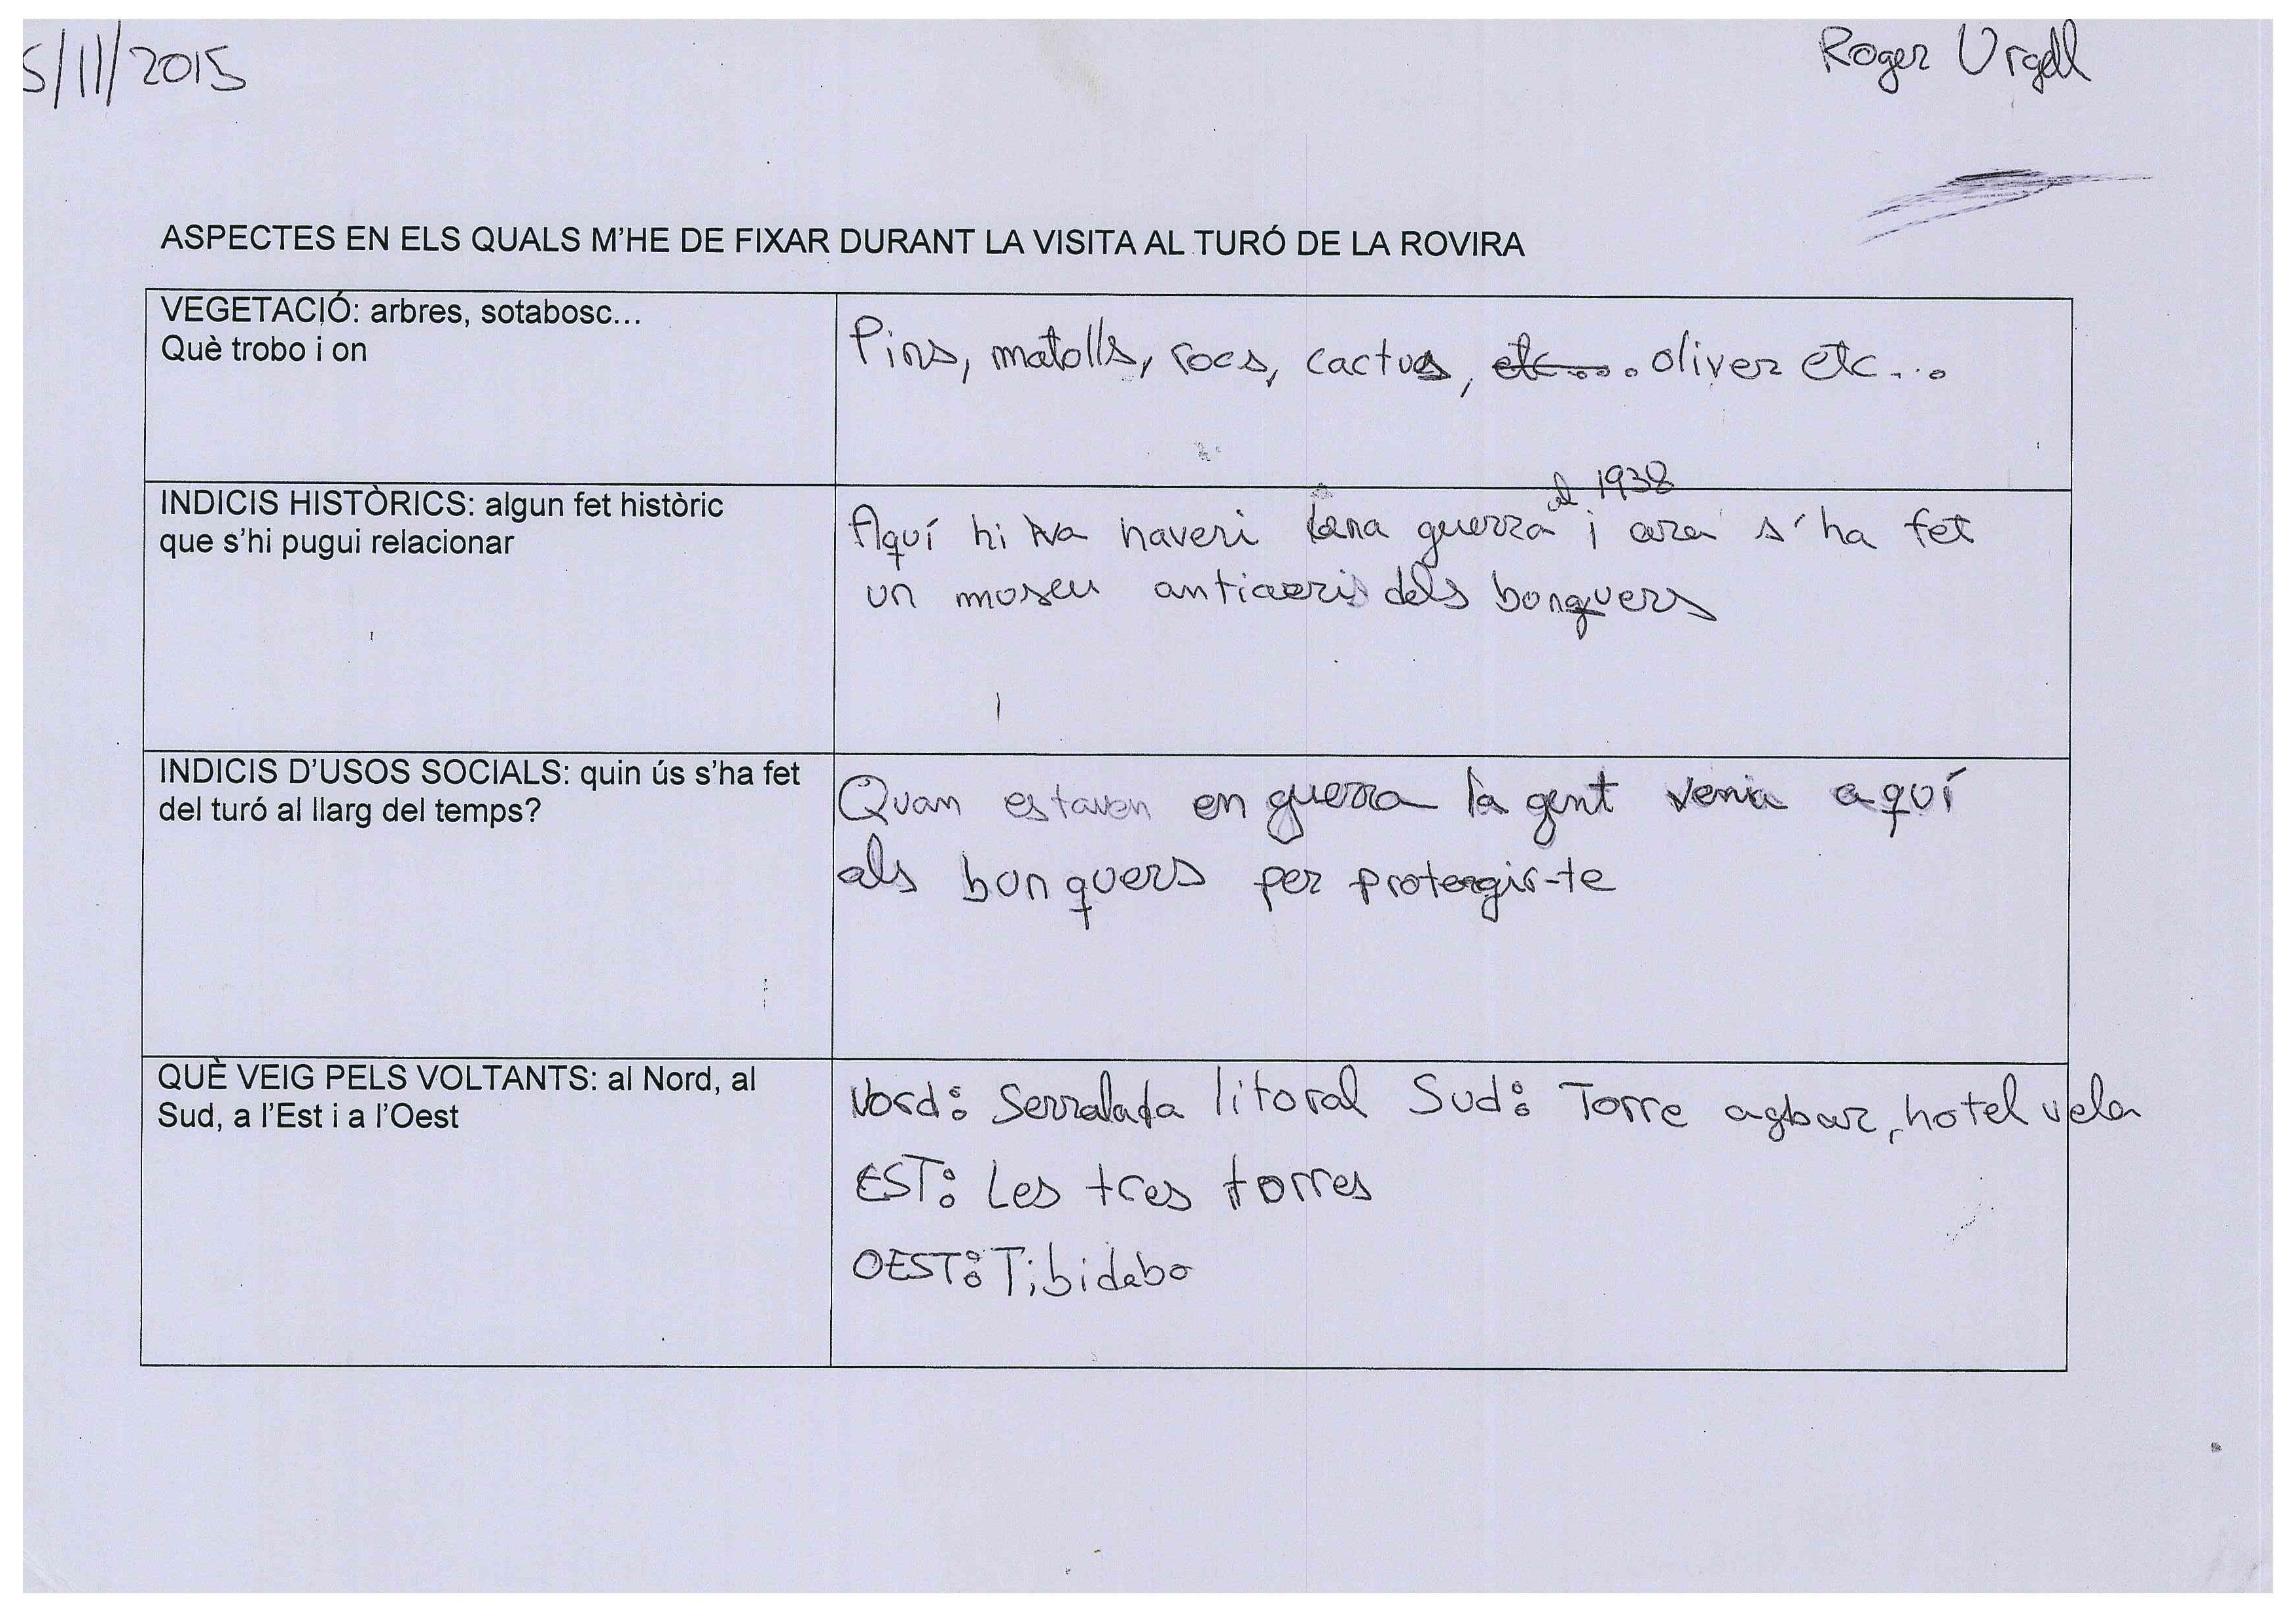 5/11/2015
Roger Urgell
ASPECTES EN ELS QUALS M'HE DE FIXAR DURANT LA VISITA AL TURÓ DE LA ROVIRA
VEGETACIÓ: arbres, sotabosc...
Què trobo i on
Pins, matolls, rocs, cactus, etc.... oliver etc...
INDICIS HISTÒRICS: algun fet històric
que s'hi pugui relacionar
al 1938
Aquí hi va haveri una guerra i ara s'ha fet
un moseu antiaeris dels bonquers
INDICIS D'USOS SOCIALS: quin ús s'ha fet
del turó al llarg del temps?
Quan estaven en guerra la gent venia aquí
als bonquers per protergir-te
QUÈ VEIG PELS VOLTANTS: al Nord, al
Sud, a l'Est i a l'Oest
Nord: Serralada litoral Sud: Torre agbar, hotel vela
EST: Les tres torres
OEST: Tibidabo